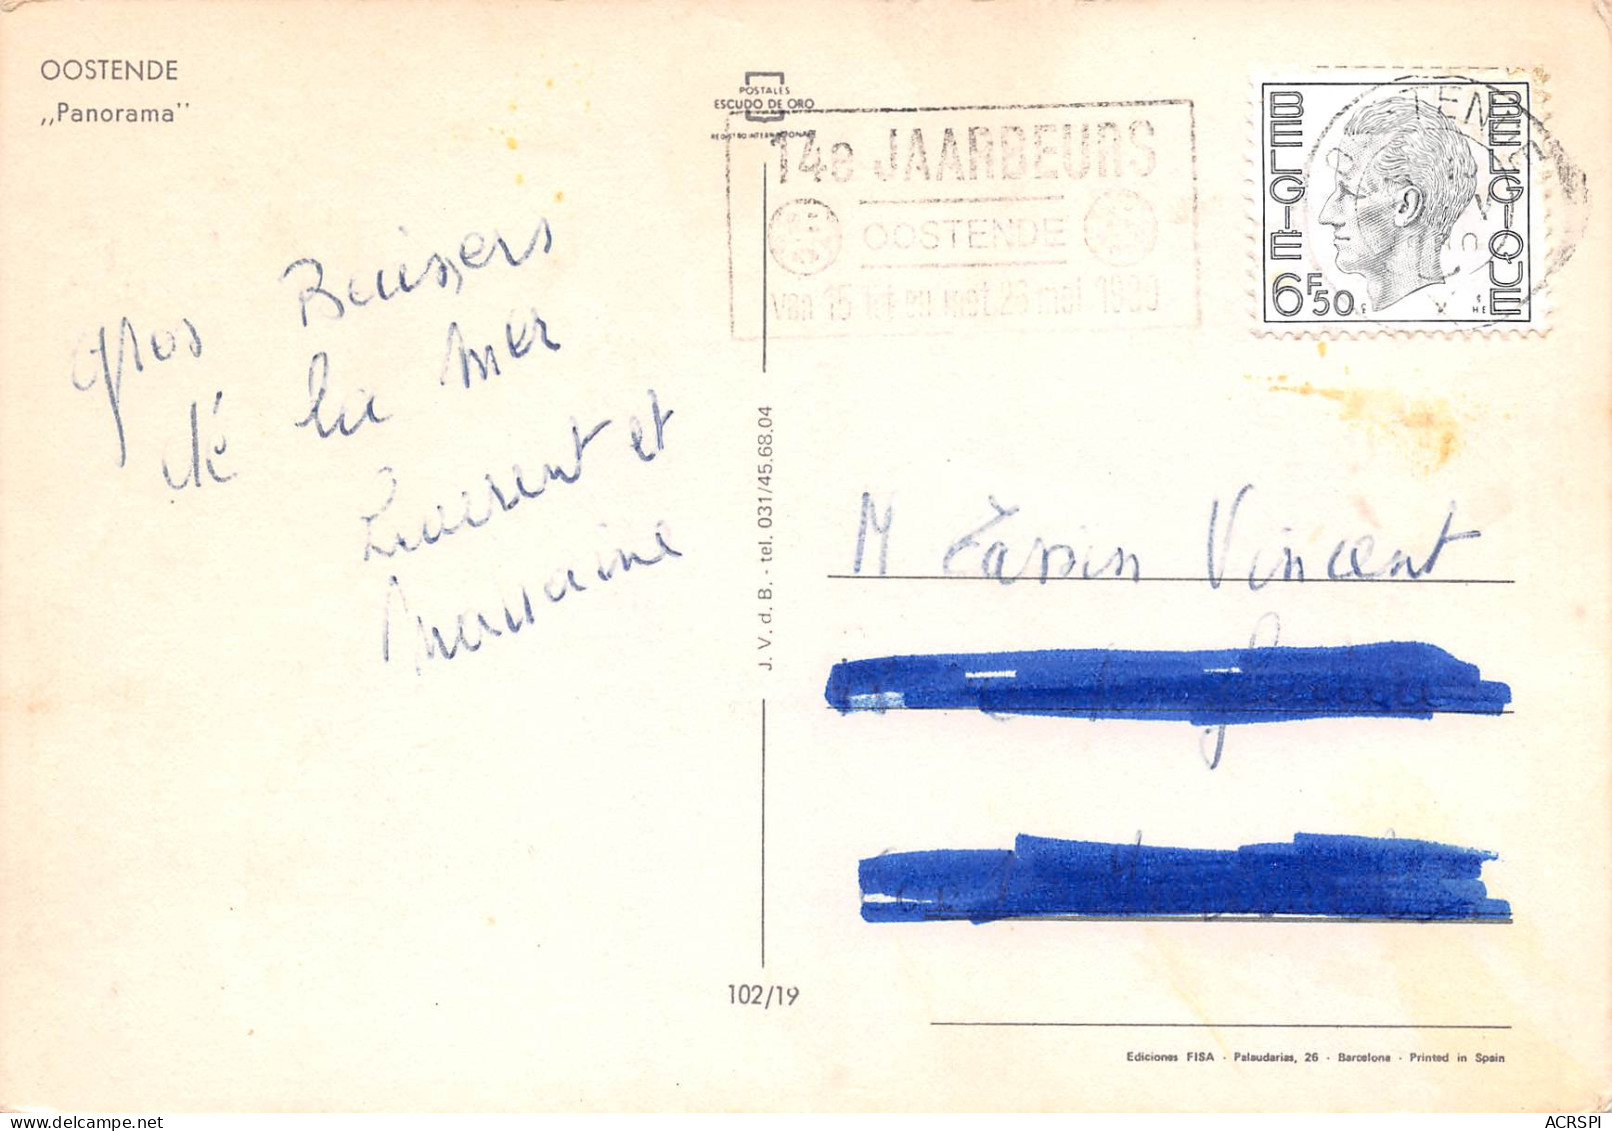 OOSTENDE
„Panorama"
POSTALES
ESCUDO DE ORO
REGISTRO INTERNACIONAL
14e JAARBEURS
OOSTENDE
van 15 tot en met 26 mei 1980
BELGIË
BELGIQUE
6F50
gros Baisers
de la mer
Laurent et
J. V. d. B. - tel. 031/45.68.04
M Tassin Vincent
102/19
Ediciones FISA - Palaudarias, 26 - Barcelona - Printed in Spain
ACRSPI